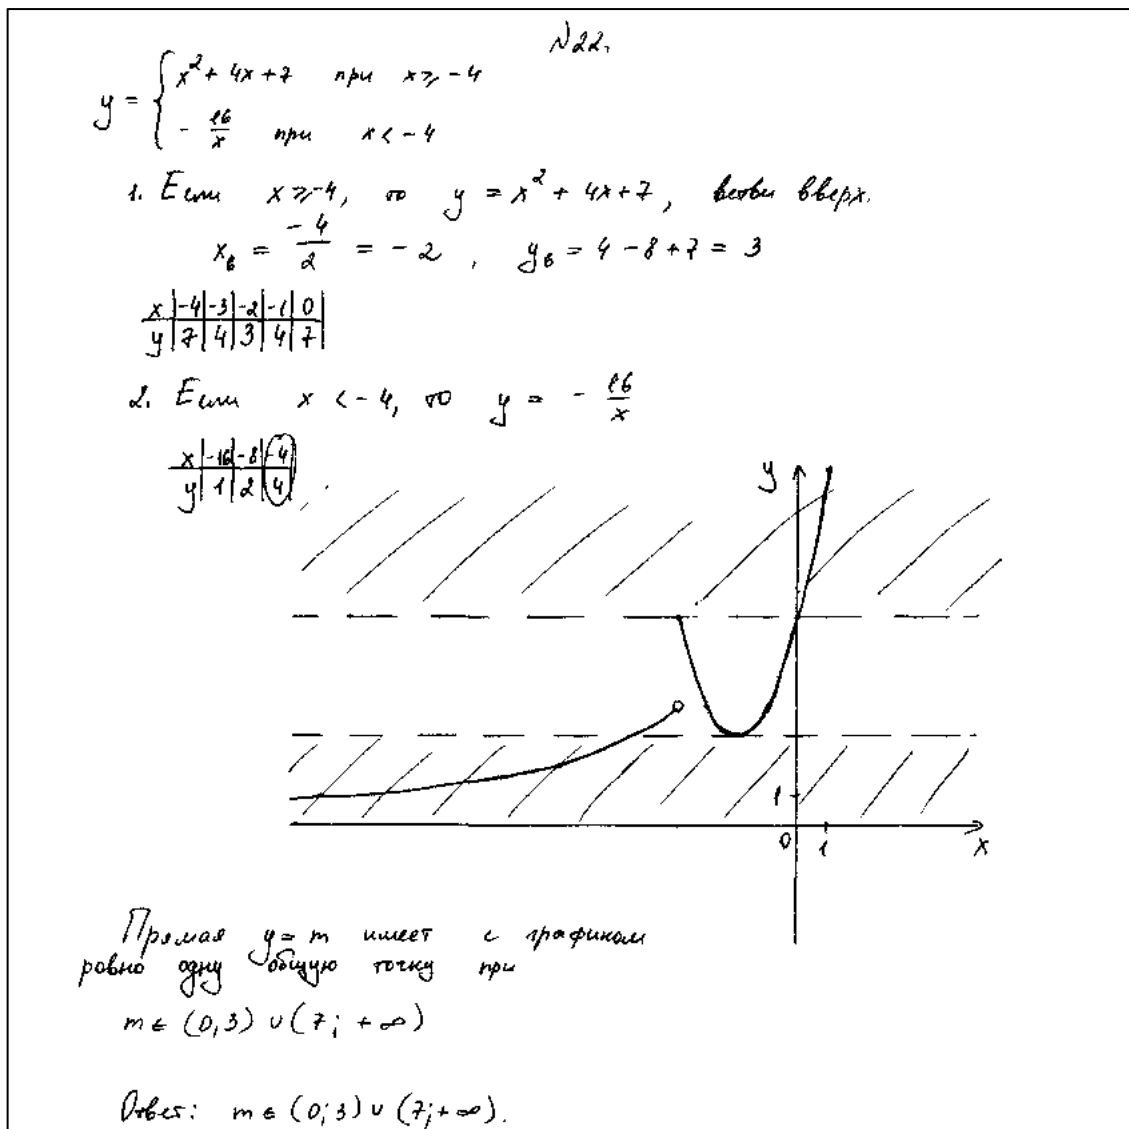 №22.
y = { x² + 4x + 7 при x ≥ -4
- 16/x при x < -4
1. Если x ≥ -4, то y = x² + 4x + 7, ветви вверх.
xв = -4/2 = -2, yв = 4 - 8 + 7 = 3
x | -4 | -3 | -2 | -1 | 0 |
y | 7 | 4 | 3 | 4 | 7 |
2. Если x < -4, то y = - 16/x
x | -16 | -8 | -4
y | 1 | 2 | 4
y
1
0 1 x
Прямая y = m имеет с графиком
ровно одну общую точку при
m ∈ (0; 3) ∪ (7; +∞)
Ответ: m ∈ (0; 3) ∪ (7; +∞).